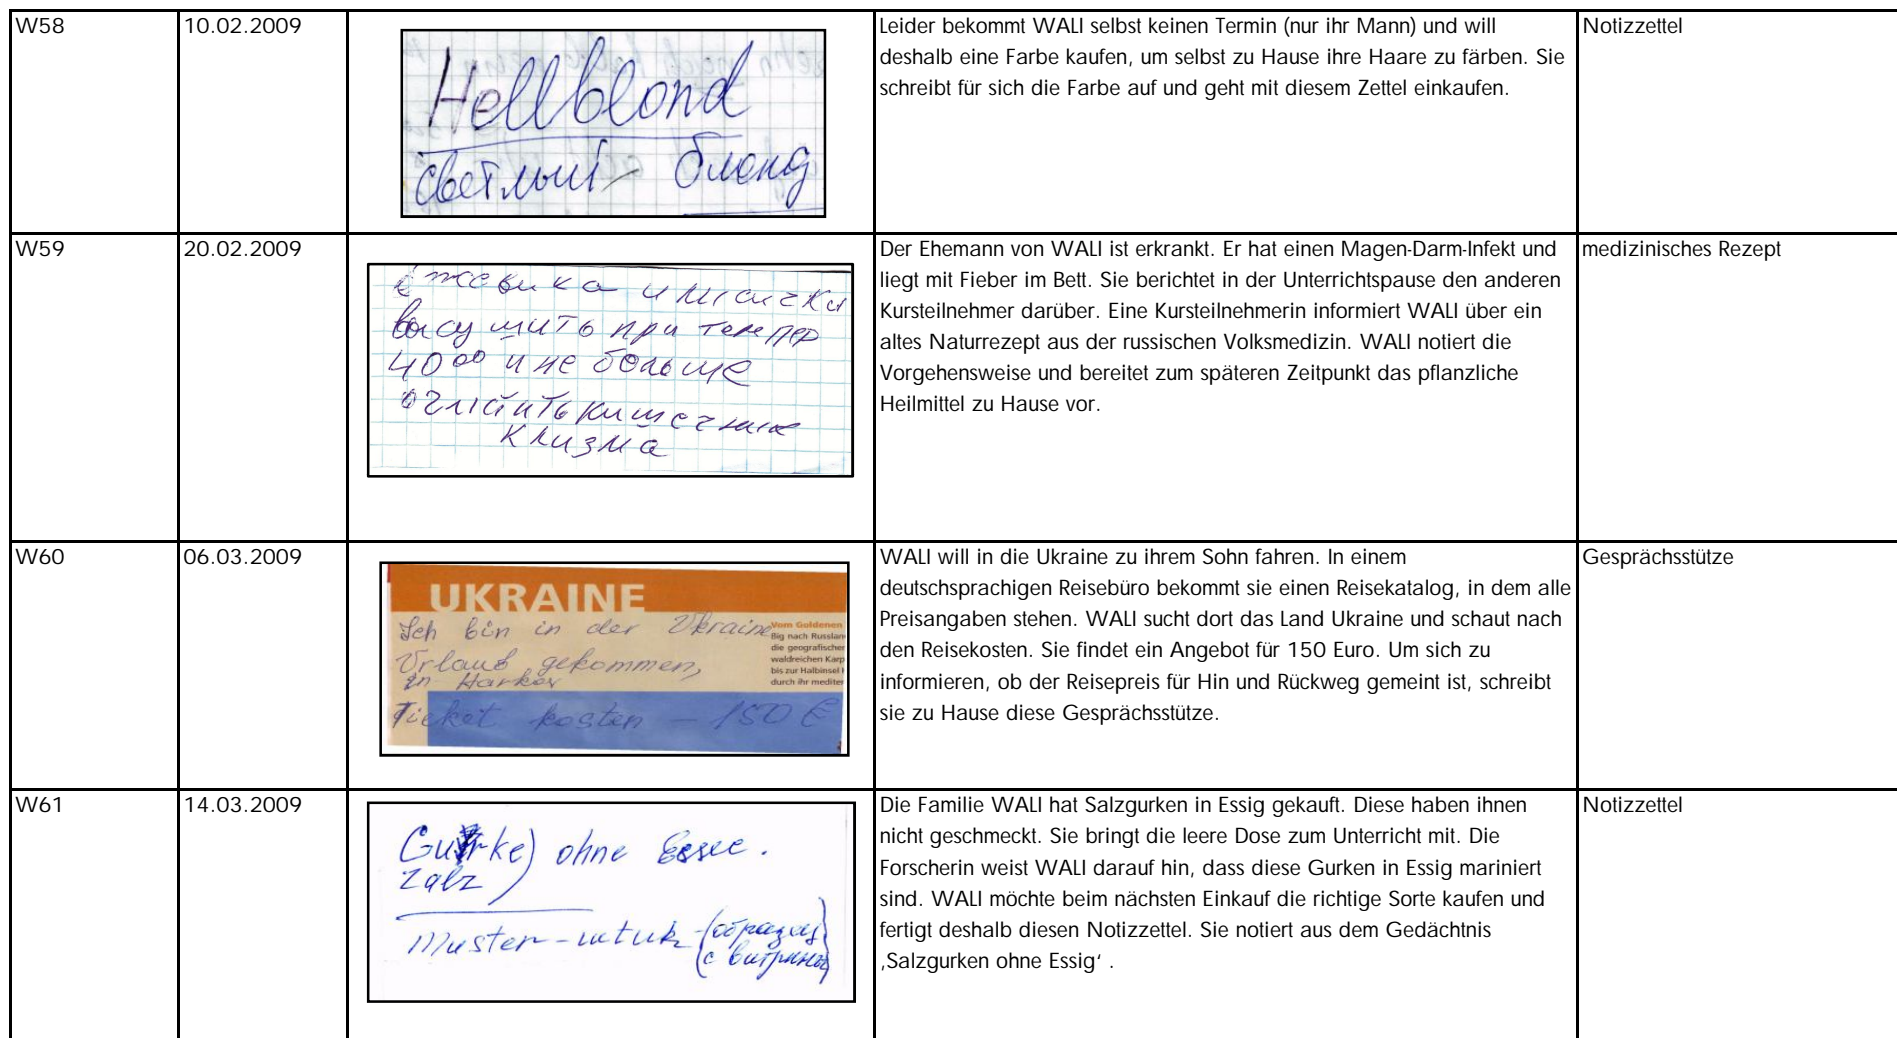 W58
10.02.2009
Hellblond
светлый - блонд
Leider bekommt WALI selbst keinen Termin (nur ihr Mann) und will
deshalb eine Farbe kaufen, um selbst zu Hause ihre Haare zu färben. Sie
schreibt für sich die Farbe auf und geht mit diesem Zettel einkaufen.
Notizzettel
W59
20.02.2009
ежевика и шишки
высушить при темпер
40⁰⁰ и не больше
очистить кишечник
клизма
Der Ehemann von WALI ist erkrankt. Er hat einen Magen-Darm-Infekt und
liegt mit Fieber im Bett. Sie berichtet in der Unterrichtspause den anderen
Kursteilnehmer darüber. Eine Kursteilnehmerin informiert WALI über ein
altes Naturrezept aus der russischen Volksmedizin. WALI notiert die
Vorgehensweise und bereitet zum späteren Zeitpunkt das pflanzliche
Heilmittel zu Hause vor.
medizinisches Rezept
W60
06.03.2009
UKRAINE
Ich bin in der Ukraine
Urlaub gekommen,
in Harkov
Ticket kosten - 150 €
Vom Guldenen
Big nach Russlan
die geografischer
waldreichen Karp
bis zur Halbinsel
durch ihr mediter
WALI will in die Ukraine zu ihrem Sohn fahren. In einem
deutschsprachigen Reisebüro bekommt sie einen Reisekatalog, in dem alle
Preisangaben stehen. WALI sucht dort das Land Ukraine und schaut nach
den Reisekosten. Sie findet ein Angebot für 150 Euro. Um sich zu
informieren, ob der Reisepreis für Hin und Rückweg gemeint ist, schreibt
sie zu Hause diese Gesprächsstütze.
Gesprächsstütze
W61
14.03.2009
Gurke) ohne Essee.
Zalz )
Muster - штик (образец
(с витрины)
Die Familie WALI hat Salzgurken in Essig gekauft. Diese haben ihnen
nicht geschmeckt. Sie bringt die leere Dose zum Unterricht mit. Die
Forscherin weist WALI darauf hin, dass diese Gurken in Essig mariniert
sind. WALI möchte beim nächsten Einkauf die richtige Sorte kaufen und
fertigt deshalb diesen Notizzettel. Sie notiert aus dem Gedächtnis
‚Salzgurken ohne Essig‘ .
Notizzettel